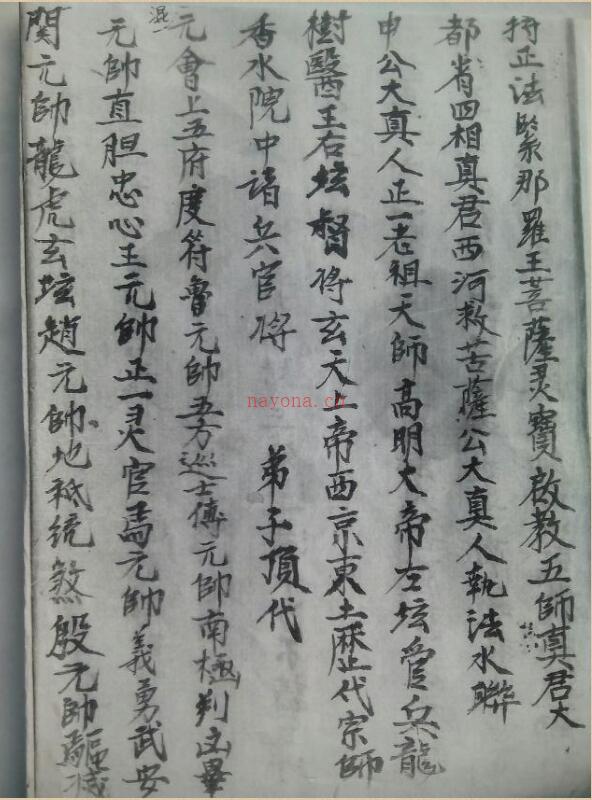 持正法緊那羅王菩薩灵寶啟教五師真君大
都省四相真君西河救苦薩公大真人執法水聯
申公大真人正一老祖天師高明大帝左坛管兵龍
樹醫王右坛督将玄天上帝西京東土歷代宗師
香水院中諸兵官将 弟子頂代
混
元會上五府度符魯元帥五方巡士傅元帥南極判凶畢
元帥直胆忠心王元帥正一灵官馬元帥義勇武安
関元帥龍虎玄坛趙元帥地祗統煞殷元帥驅滅
nayona.cn